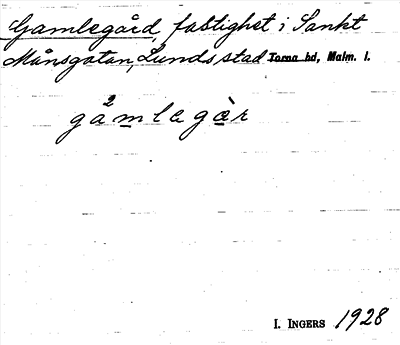 Gamlegård, fastighet i Sankt
Månsgatan, Lunds stad Torna hd, Malm. l.
gå²mlegàr
I. INGERS 1928